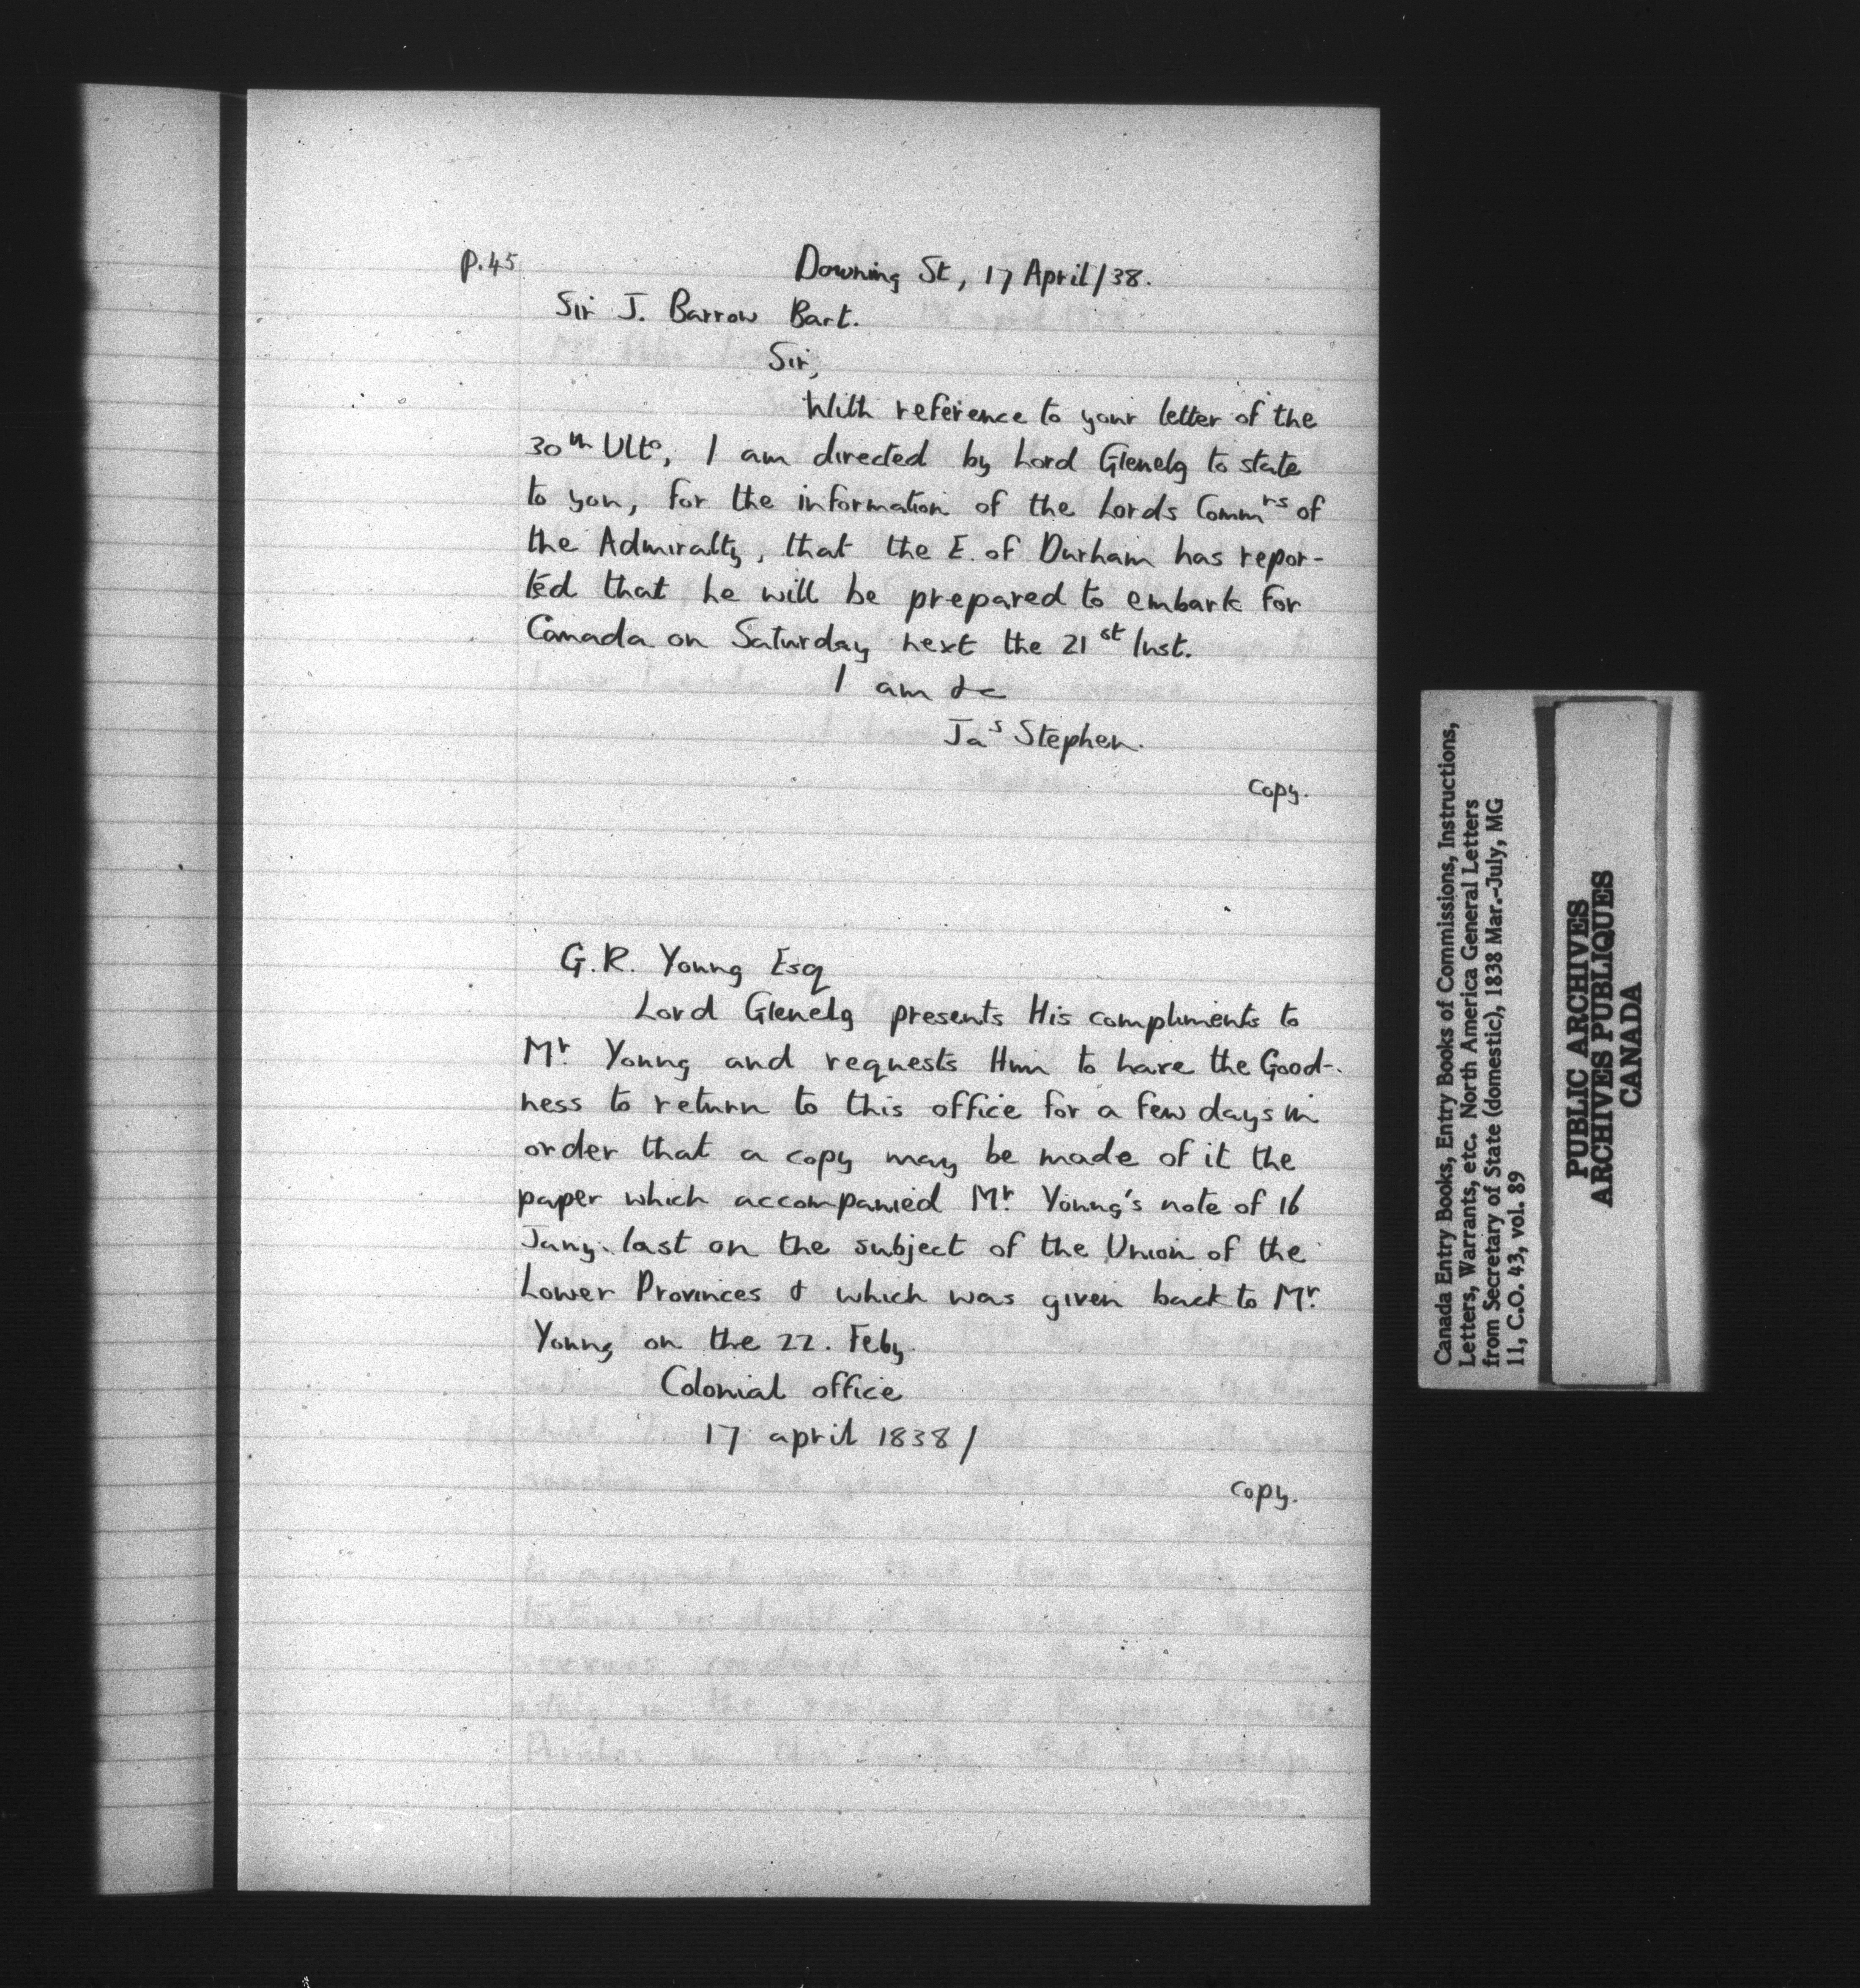 p.45
Downing St, 17 April/38.
Sir J. Barrow Bart.
Sir,
With reference to your letter of the
30th Ulto, I am directed by Lord Glenelg to state
to you, for the information of the Lords Commrs of
the Admiralty, that the E. of Durham has repor-
ted that he will be prepared to embark for
Canada on Saturday next the 21st Inst.
I am &c
Jas Stephen.
copy.
G.R. Young Esq
Lord Glenelg presents His compliments to
Mr. Young and requests Him to have the Good-
ness to return to this office for a few days in
order that a copy may be made of it the
paper which accompanied Mr. Young's note of 16
Jany. last on the subject of the Union of the
Lower Provinces & which was given back to Mr.
Young on the 22. Feby.
Colonial office
17 april 1838/
copy.
Canada Entry Books, Entry Books of Commissions, Instructions,
Letters, Warrants, etc. North America General Letters
from Secretary of State (domestic), 1838 Mar.-July, MG
11, C.O. 43, vol. 89
PUBLIC ARCHIVES
ARCHIVES PUBLIQUES
CANADA